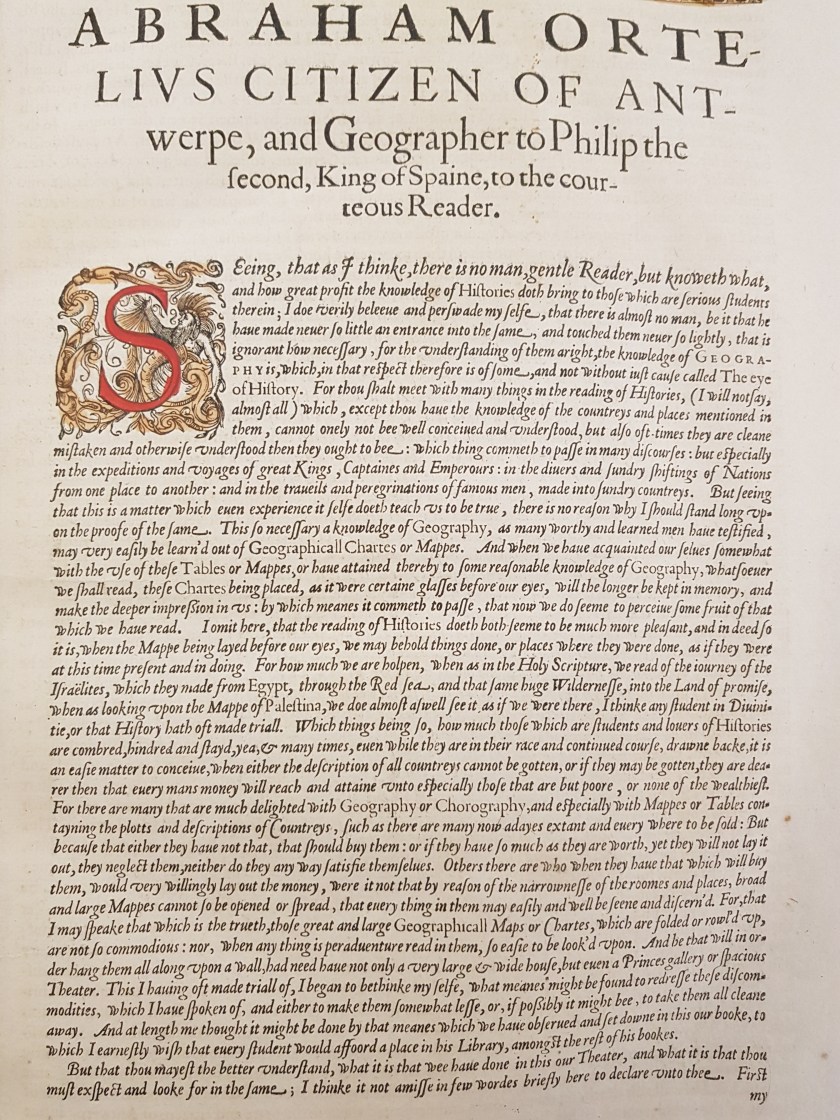 ABRAHAM ORTE-
LIVS CITIZEN OF ANT-
werpe, and Geographer to Philip the
ſecond, King of Spaine, to the cour-
teous Reader.
SEeing, that as I thinke, there is no man, gentle Reader, but knoweth what,
and how great profit the knowledge of Hiſtories doth bring to thoſe which are ſerious ſtudents
therein; I doe verily beleeue and perſwade my ſelfe, that there is almoſt no man, be it that he
haue made neuer ſo little an entrance into the ſame, and touched them neuer ſo lightly, that is
ignorant how neceſſary, for the vnderſtanding of them aright, the knowledge of GEOGRA-
PHY is, which, in that reſpect therefore is of ſome, and not without iuſt cauſe called The eye
of Hiſtory. For thou ſhalt meet with many things in the reading of Hiſtories, (I will not ſay,
almoſt all) which, except thou haue the knowledge of the countreys and places mentioned in
them, cannot onely not bee well conceiued and vnderſtood, but alſo oft-times they are cleane
miſtaken and otherwiſe vnderſtood then they ought to bee: which thing commeth to paſſe in many diſcourſes: but eſpecially
in the expeditions and voyages of great Kings, Captaines and Emperours: in the diuers and ſundry ſhiftings of Nations
from one place to another: and in the traueils and peregrinations of famous men, made into ſundry countreys. But ſeeing
that this is a matter which euen experience it ſelfe doeth teach vs to be true, there is no reaſon why I ſhould ſtand long vp-
on the proofe of the ſame. This ſo neceſſary a knowledge of Geography, as many worthy and learned men haue teſtified,
may very eaſily be learn'd out of Geographicall Chartes or Mappes. And when we haue acquainted our ſelues ſomewhat
with the vſe of theſe Tables or Mappes, or haue attained thereby to ſome reaſonable knowledge of Geography, whatſoeuer
we ſhall read, theſe Chartes being placed, as it were certaine glaſſes before our eyes, will the longer be kept in memory, and
make the deeper impreſsion in vs: by which meanes it commeth to paſſe, that now we do ſeeme to perceiue ſome fruit of that
which we haue read. I omit here, that the reading of Hiſtories doeth both ſeeme to be much more pleaſant, and in deed ſo
it is, when the Mappe being layed before our eyes, we may behold things done, or places where they were done, as if they were
at this time preſent and in doing. For how much we are holpen, when as in the Holy Scripture, we read of the iourney of the
Iſraëlites, which they made from Egypt, through the Red ſea, and that ſame huge Wilderneſſe, into the Land of promiſe,
when as looking vpon the Mappe of Paleſtina, we doe almoſt aſwell ſee it as if we were there, I thinke any ſtudent in Diuini-
tie, or that Hiſtory hath oft made triall. Which things being ſo, how much thoſe which are ſtudents and louers of Hiſtories
are combred, hindred and ſtayd, yea, & many times, euen while they are in their race and continued courſe, drawne backe, it is
an eaſie matter to conceiue, when either the deſcription of all countreys cannot be gotten, or if they may be gotten, they are dea-
rer then that euery mans money will reach and attaine vnto eſpecially thoſe that are but poore, or none of the wealthieſt.
For there are many that are much delighted with Geography or Chorography, and eſpecially with Mappes or Tables con-
tayning the plotts and deſcriptions of Countreys, ſuch as there are many now adayes extant and euery where to be ſold: But
becauſe that either they haue not that, that ſhould buy them: or if they haue ſo much as they are worth, yet they will not lay it
out, they neglect them, neither do they any way ſatisfie themſelues. Others there are who when they haue that which will buy
them, would very willingly lay out the money, were it not that by reaſon of the narrowneſſe of the roomes and places, broad
and large Mappes cannot ſo be opened or ſpread, that euery thing in them may eaſily and well be ſeene and diſcern'd. For, that
I may ſpeake that which is the trueth, thoſe great and large Geographicall Maps or Chartes, which are folded or rowl'd vp,
are not ſo commodious: nor, when any thing is peraduenture read in them, ſo eaſie to be look'd vpon. And he that will in or-
der hang them all along vpon a wall, had need haue not only a very large & wide houſe, but euen a Princes gallery or ſpacious
Theater. This I hauing oft made triall of, I began to bethinke my ſelfe, what meanes might be found to redreſſe theſe diſcom-
modities, which I haue ſpoken of, and either to make them ſomewhat leſſe, or, if poſsibly it might bee, to take them all cleane
away. And at length me thought it might be done by that meanes which we haue obſerued and ſet downe in this our booke, to
which I earneſtly wiſh that euery ſtudent would affoord a place in his Library, amongſt the reſt of his bookes.
But that thou mayeſt the better vnderſtand, what it is that wee haue done in this our Theater, and what it is that thou
muſt exſpect and looke for in the ſame; I thinke it not amiſſe in few wordes briefly here to declare vnto thee. Firſt
my